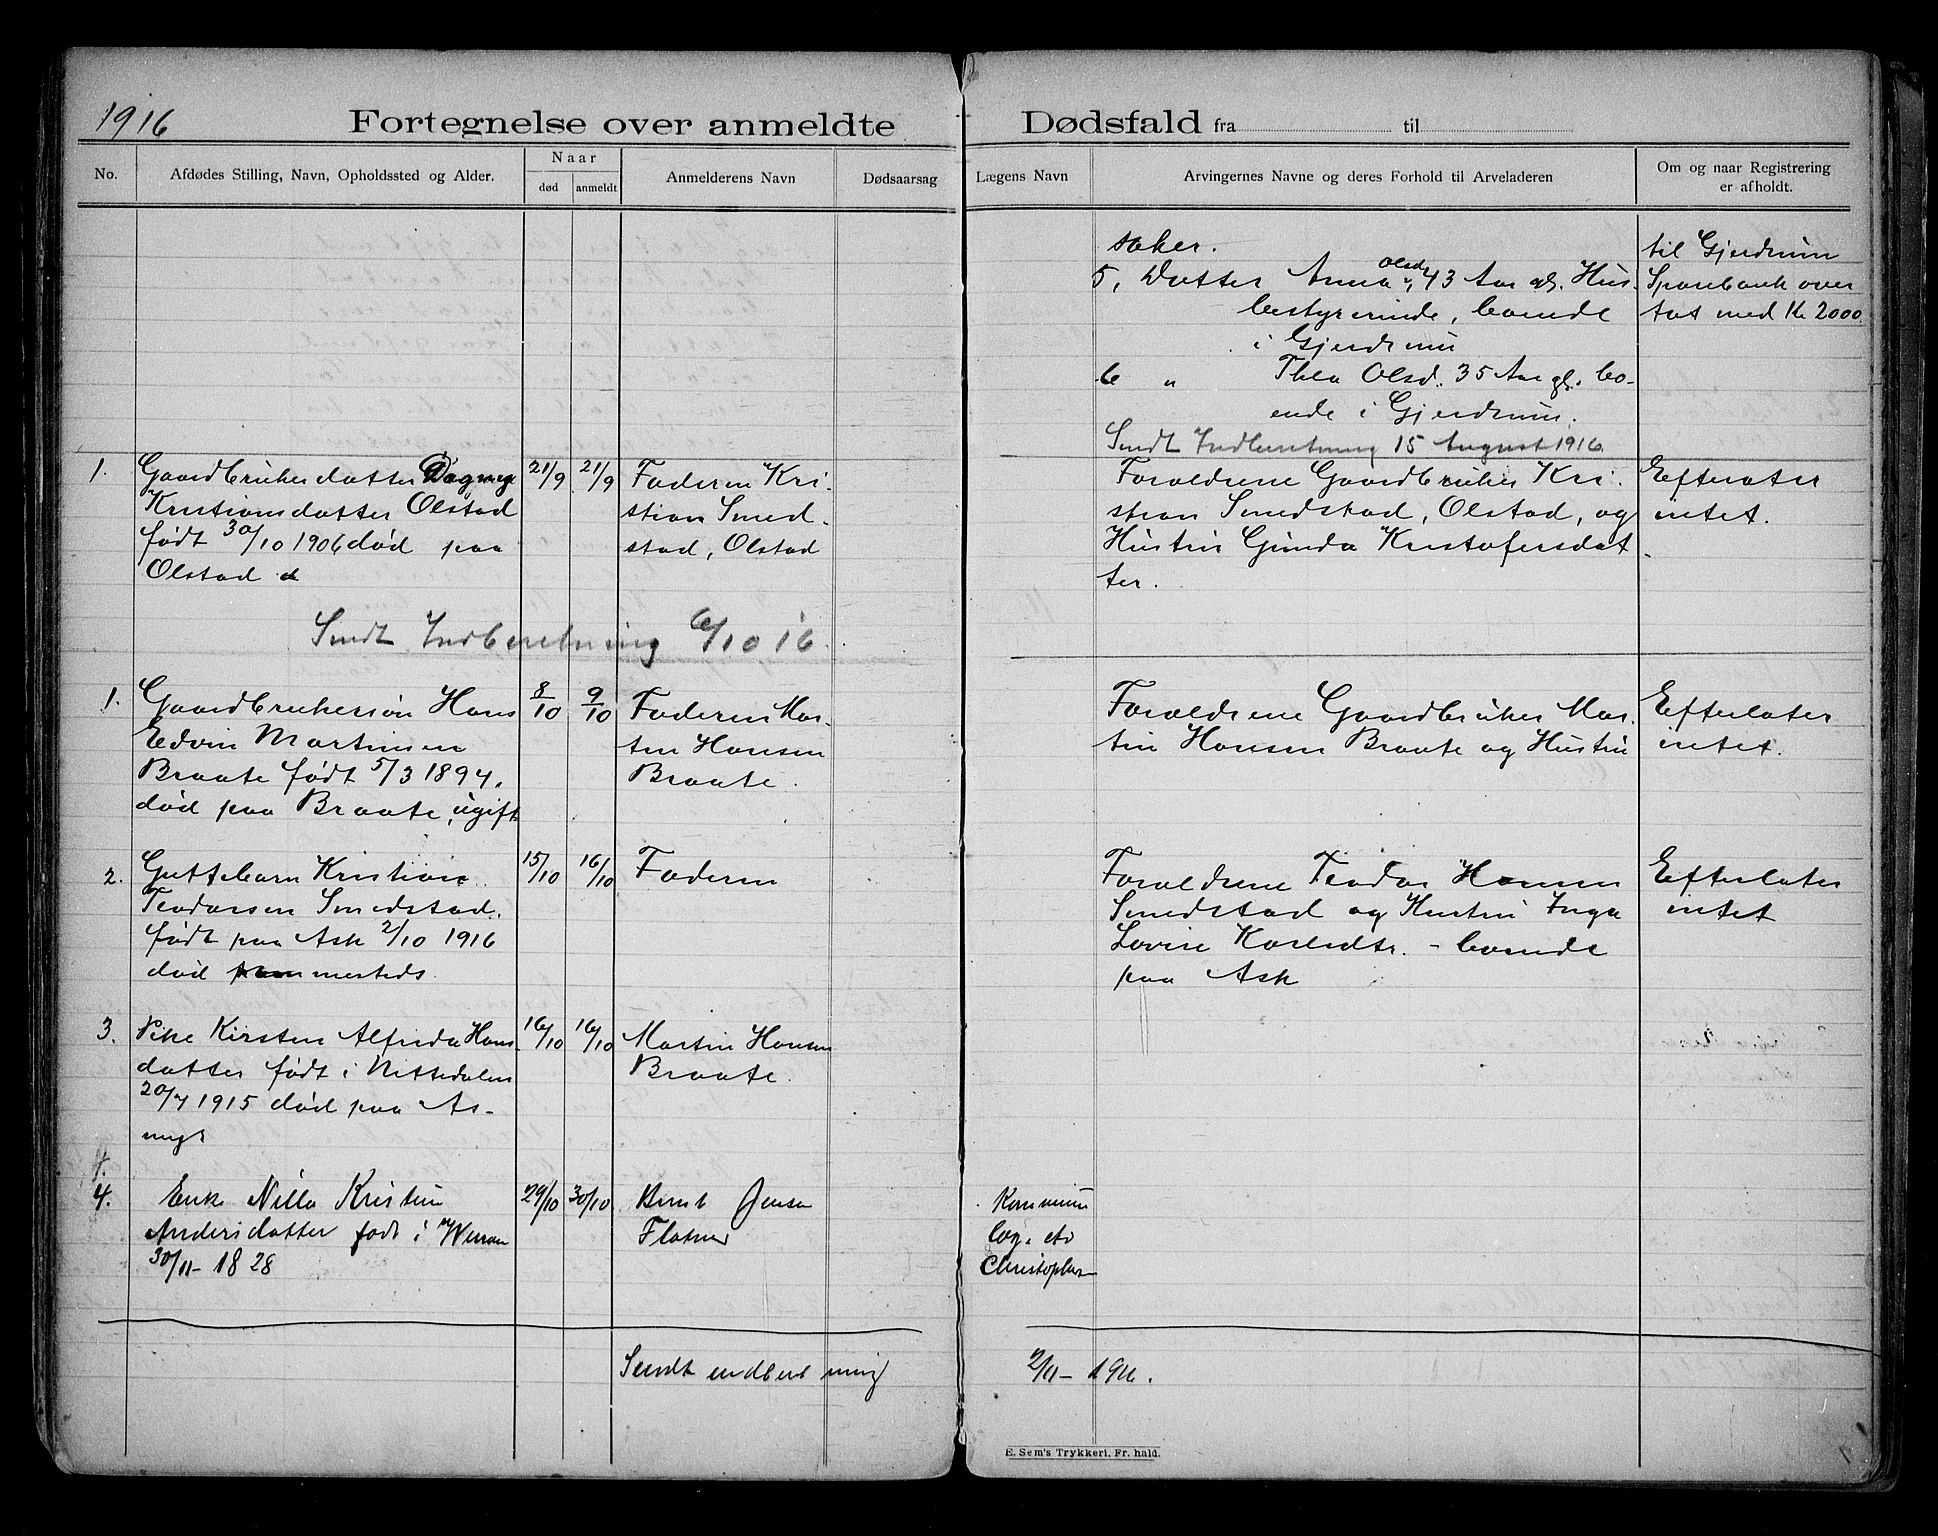 1916
Fortegnelse over anmeldte Dødsfald fra til
No.
Afdødes Stilling, Navn, Opholdssted og Alder.
Naar
død
anmeldt
Anmelderens Navn
Dødsaarsag
Lægens Navn
Arvingernes Navne og deres Forhold til Arveladeren
Om og naar Registrering
er afholdt.
søker.
5, Datter Anna Olsd, 43 Aar gl. Hus-
bestyrerinde, boende
i Gjerdrum
6 " Thea Olsd. 35 Aar gl. bo-
ende i Gjerdrum.
Sendt Indberetning 15 August 1916
til Gjerdrum
Sparebank over
tat med Kr 2000
1. Gaardbrukerdatter Dagny
Kristiansdatter Olstad
født 30/10 1906 død paa
Olstad
21/9
21/9
Faderen Kri-
stian Smed-
stad, Olstad
Forældrene Gaardbruker Kri-
stian Smedstad, Olstad, og
Hustru Gunda Kristofersdat
ter.
Efterlater
intet.
Sendt Indberetning 6/10 16.
1. Gaardbrukersøn Hans
Edvin Martinsen
Braate født 5/3 1894.
død paa Braate, ugift
8/10
9/10
Faderen Mar-
tin Hansen
Braate.
Forældrene Gaardbruker Mar-
tin Hansen Braate og Hustru
Efterlater
intet.
2. Guttebarn Kristian
Teodorsen Smedstad.
født paa Ask 2/10 1916
død sammesteds.
15/10
16/10
Faderen
Forældrene Teodor Hansen
Smedstad og Hustru Inga
Lovise Karlsdtr. - boende
paa Ask
Efterlater
intet
3. Pike Kirsten Alfrida Hans
datter født i Nittedalen
20/7 1915 død paa As-
myr
16/10
16/10
Martin Hansen
Braate.
4.
4. Enke Nilla Kristin
Andersdatter født i
30/11- 1828
29/10
30/10
Bernt Jensen
Flatner
Kommun
læg.
Christophersen
Sendt indberetning
2/11- 1916.
E. Sem's Trykkeri, Fr. hald.